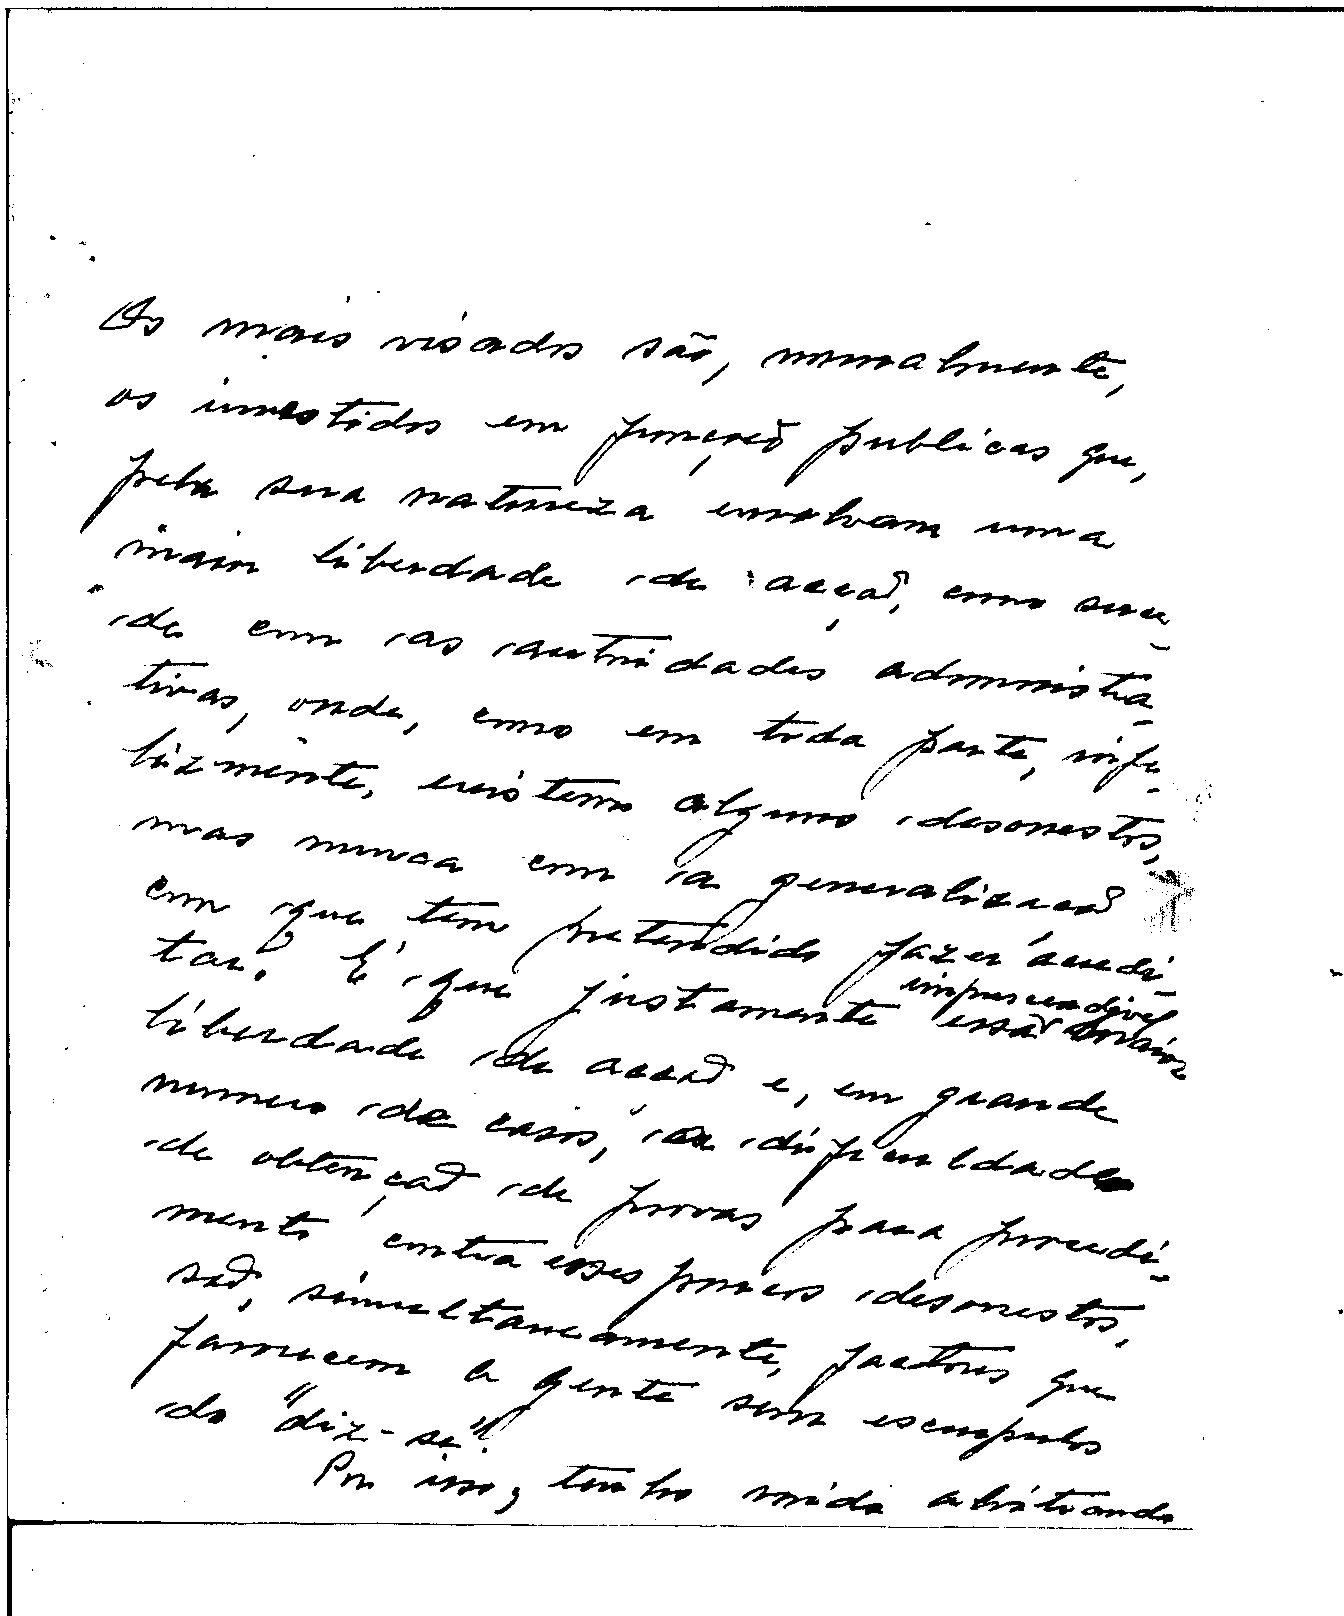 Os mais visados são, normalmente,
os investidos em funções publicas que,
pela sua natureza envolvam uma
maior liberdade de acção, como suce-
de com as autoridades administra-
tivas, onde, como em toda parte, infe-
lizmente, existem alguns desonestos,
mas nunca com a generalização
com que tem pretendido fazer acredi-
tar. É que justamente essa imprescindivel maior
liberdade de acção e, em grande
numero de casos, a dificuldade
de obtenção de provas para procedi-
mento contra esses poucos desonestos,
são, simultaneamente, factores que
favorecem a gente sem escrupulos
do "diz-se".
Por isso, tenho vindo